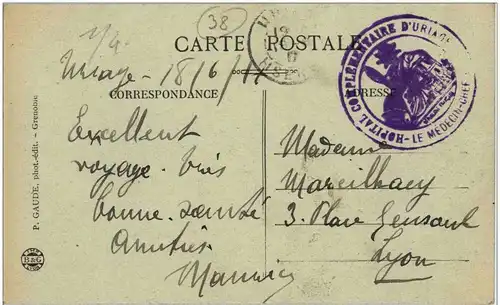 38
CARTE POSTALE
HOPITAL COMPLEMENTAIRE D'URIAGE
-LE MÉDECIN-CHEF-
Uriage - 18/6/17
CORRESPONDANCE
ADRESSE
Excellent
voyage. très
bonne santé
Amitiés
Madame
Mareilhacy
3. Place Gensoul
Lyon
P. GAUDE, phot.-édit. - Grenoble
B&G